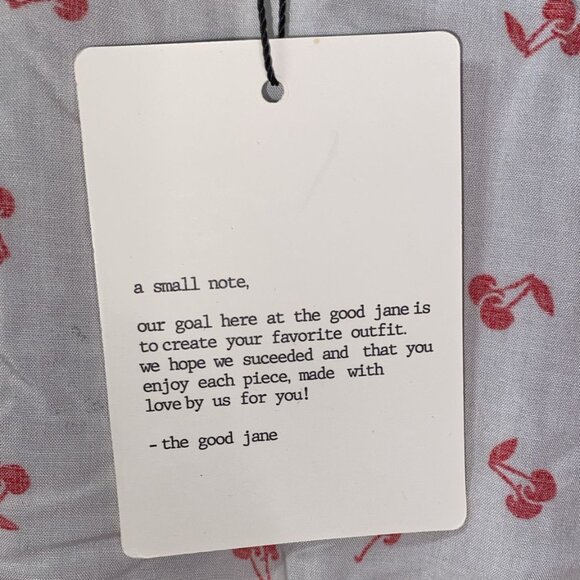 a small note,
our goal here at the good jane is
to create your favorite outfit.
we hope we suceeded and that you
enjoy each piece, made with
love by us for you!
- the good jane